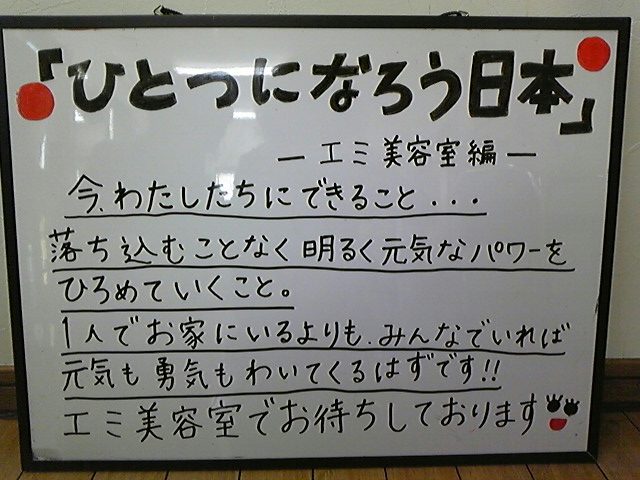 「ひとつになろう日本」
― エミ美容室編 ―
今、わたしたちにできること・・・
落ち込むことなく明るく元気なパワーを
ひろめていくこと。
1人でお家にいるよりも、みんなでいれば
元気も勇気もわいてくるはずです!!
エミ美容室でお待ちしております